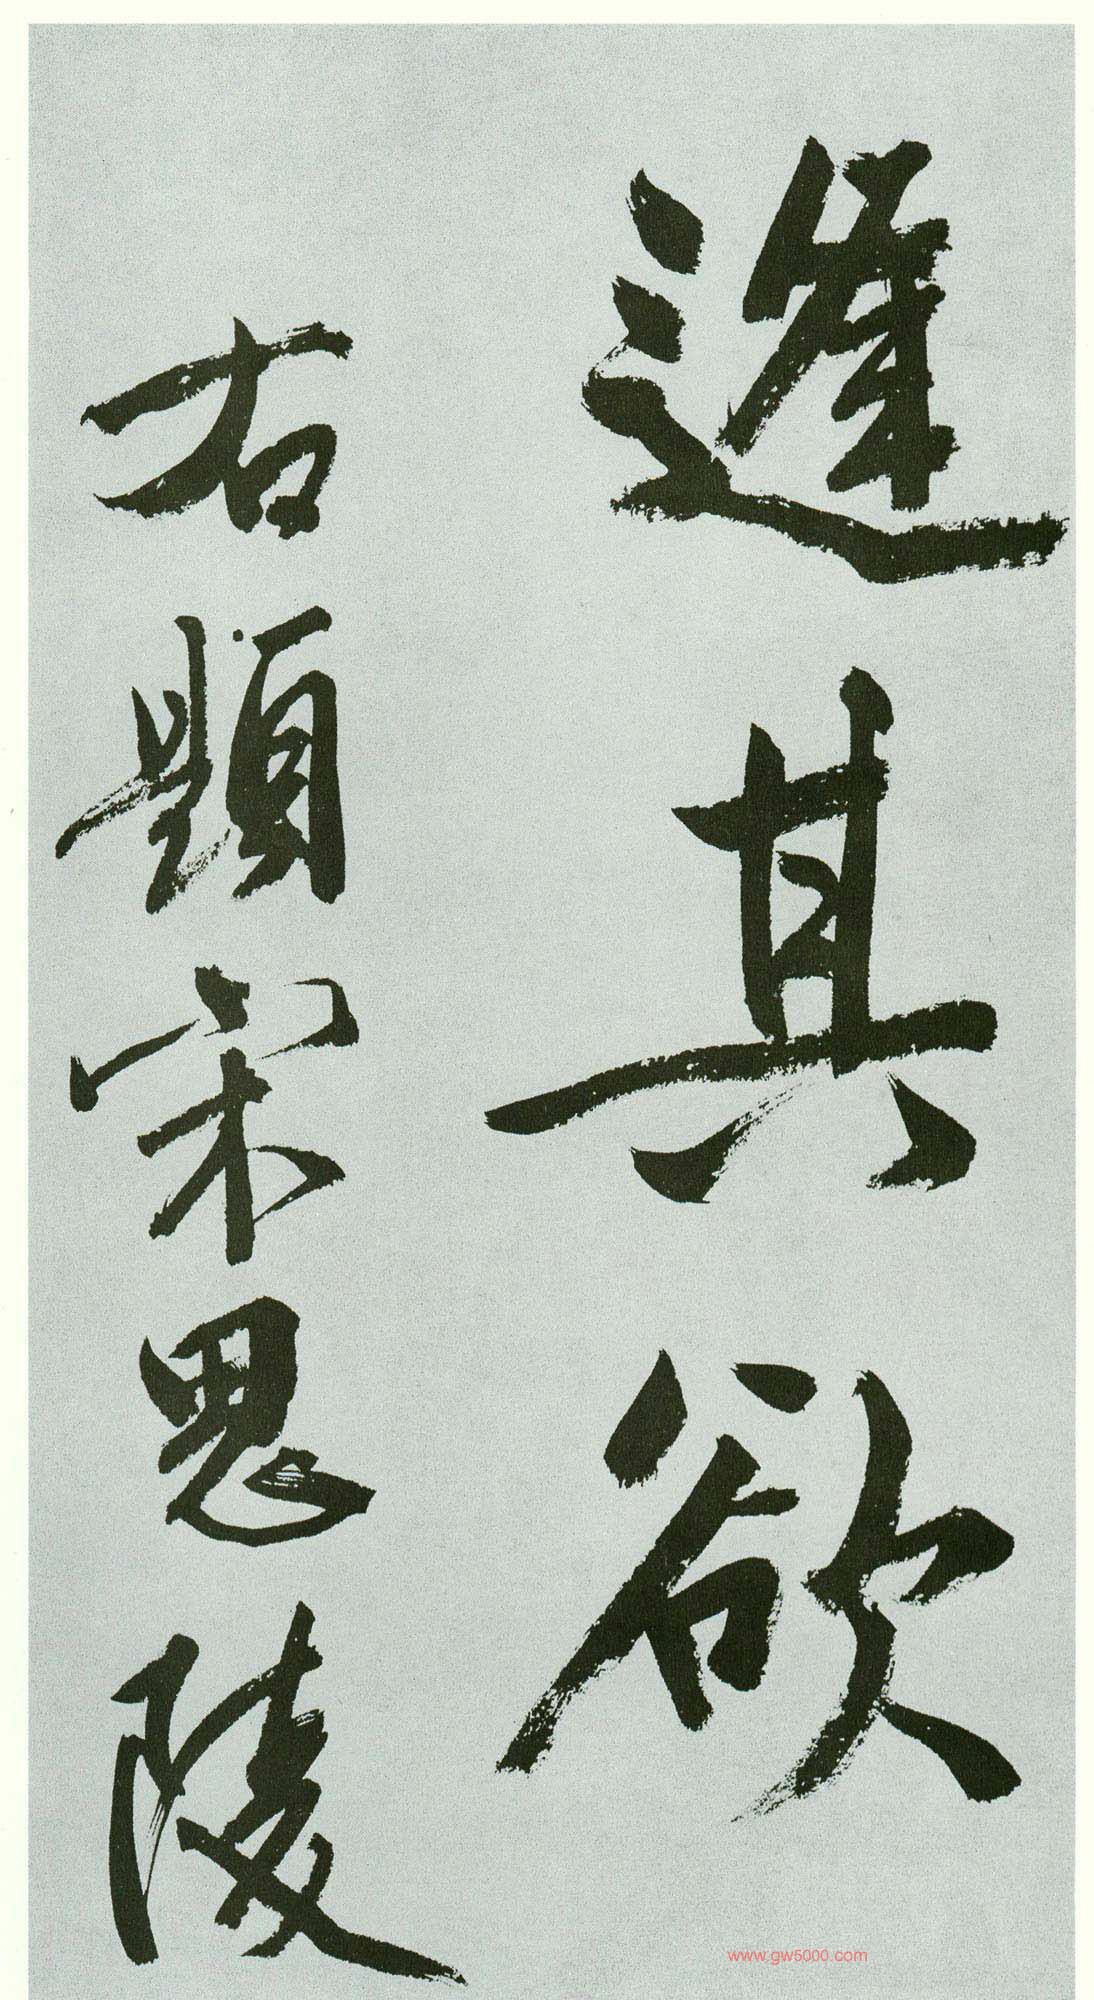 逢其欲
右題宋思陵
www.gw5000.com